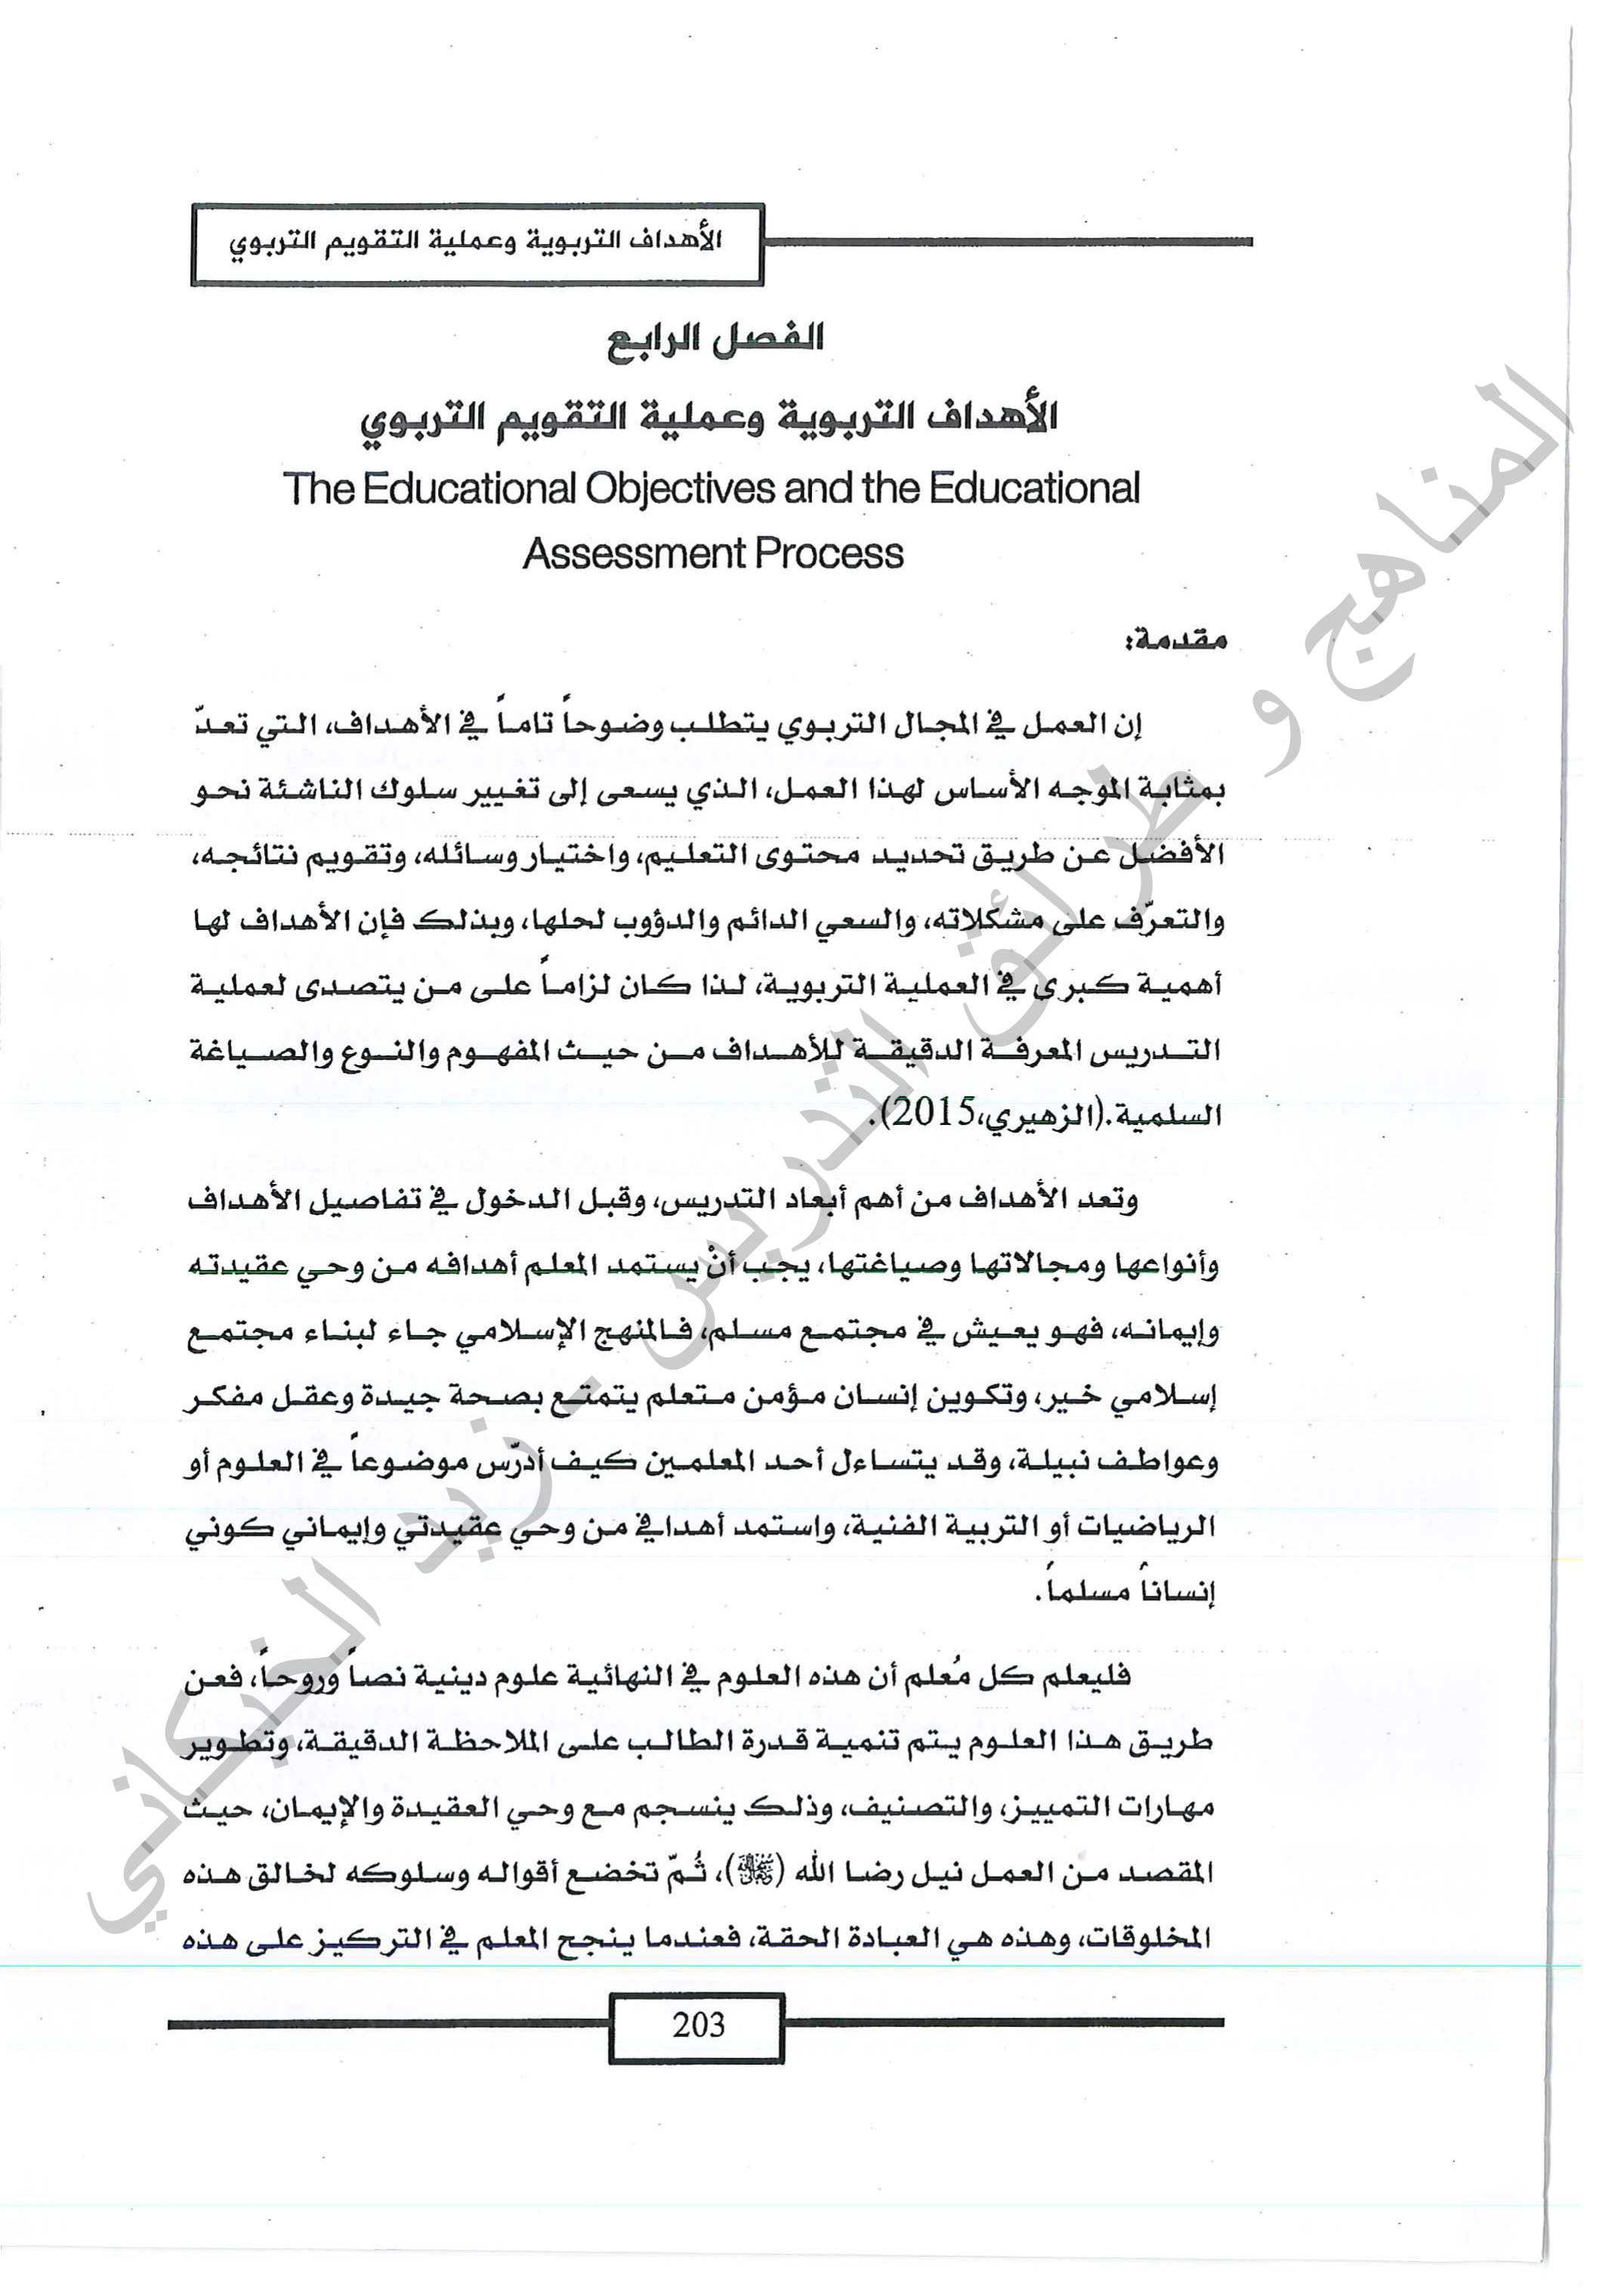 الأهداف التربوية وعملية التقويم التربوي
الفصل الرابع
الأهداف التربوية وعملية التقويم التربوي
The Educational Objectives and the Educational
Assessment Process
مقدمة:
إن العمل في المجال التربوي يتطلب وضوحاً تاماً في الأهداف، التي تعدّ
بمثابة الموجه الأساس لهذا العمل، الذي يسعى إلى تغيير سلوك الناشئة نحو
الأفضل عن طريق تحديد محتوى التعليم، واختيار وسائله، وتقويم نتائجه،
والتعرّف على مشكلاته، والسعي الدائم والدؤوب لحلها، وبذلك فإن الأهداف لها
أهمية كبرى في العملية التربوية، لذا كان لزاماً على من يتصدى لعملية
التدريس المعرفة الدقيقة للأهداف من حيث المفهوم والنوع والصياغة
السلمية.(الزهيري،2015).
وتعد الأهداف من أهم أبعاد التدريس، وقبل الدخول في تفاصيل الأهداف
وأنواعها ومجالاتها وصياغتها، يجب أنْ يستمد المعلم أهدافه من وحي عقيدته
وإيمانه، فهو يعيش في مجتمع مسلم، فالمنهج الإسلامي جاء لبناء مجتمع
إسلامي خير، وتكوين إنسان مؤمن متعلم يتمتع بصحة جيدة وعقل مفكر
وعواطف نبيلة، وقد يتساءل أحد المعلمين كيف أدرّس موضوعاً في العلوم أو
الرياضيات أو التربية الفنية، واستمد أهدافي من وحي عقيدتي وإيماني كوني
إنساناً مسلماً.
فليعلم كل مُعلم أن هذه العلوم في النهائية علوم دينية نصاً وروحاً، فعن
طريق هذا العلوم يتم تنمية قدرة الطالب على الملاحظة الدقيقة، وتطوير
مهارات التمييز، والتصنيف، وذلك ينسجم مع وحي العقيدة والإيمان، حيث
المقصد من العمل نيل رضا الله (ﷻ)، ثُمّ تخضع أقواله وسلوكه لخالق هذه
المخلوقات، وهذه هي العبادة الحقة، فعندما ينجح المعلم في التركيز على هذه
203
المناهج و طرائق التدريس - زيد الخيكاني